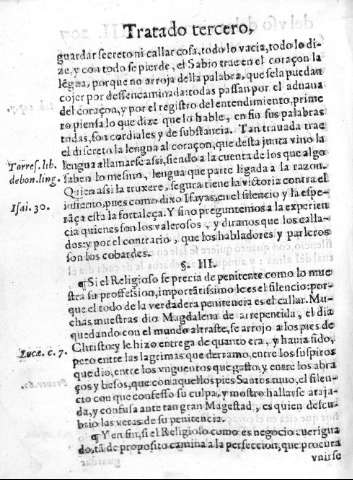 Tratado tercero,
guardar secreto ni callar cosa, todo lo vacia, todo lo di-
ze, y con todo se pierde, el Sabio trae en el coraçon la
lẽgua, porque no arroja della palabra, que se la puedan
cojer por desencaminada: todas passan por el aduana
del coraçon, y por el registro del entendimiento, prime
ro piensa lo que dize que lo hable, en fin sus palabras
todas, son cordiales y de substancia. Tan trauada trae
el discreto la lengua al coraçon, que desta junta vino la
Torres. lib.
de bon. ling.
lengua a llamarse assi, siendo a la cuenta de los que algo
saben lo mesmo, lengua que parte ligada a la razon.
Quien assi la truxere, segura tiene la victoria contra el
Isai. 30.
enemigo, pues como dixo Isayas, en el silencio y la espe-
rãça esta la fortaleça. Y sino preguntemos a la experien
cia quienes son los valerosos, y diranos que los calla-
dos: y por el contrario, que los habladores y parleros
son los cobardes.
§. III.
¶Si el Religioso se precia de penitente como lo mue
stra su proffesion, importãtissimo le es el silencio: por-
que el todo de la verdadera penitencia es el callar. Mu-
chas muestras dio Magdalena de arrepentida, el dia
que dando con el mundo al traste, se arrojo a los pies de
Lucæ. c. 7.
Christo y le hizo entrega de quanto era, y hauia sido,
pero entre las lagrimas que derramo, entre los suspiros
que dio, entre los vnguentos que gasto, y entre los abra
ços y besos, que con aquellos pies Santos tuuo, el silen-
cio con que confesso su culpa, y mostro hallarse ataja-
da, y confusa ante tan gran Magestad, es quien descu-
brio las veras de su penitencia.
¶Y en fin, si el Religioso como es negocio aueriguа
do, tã de proposito camina a la perfeccion, que procura
vnirse